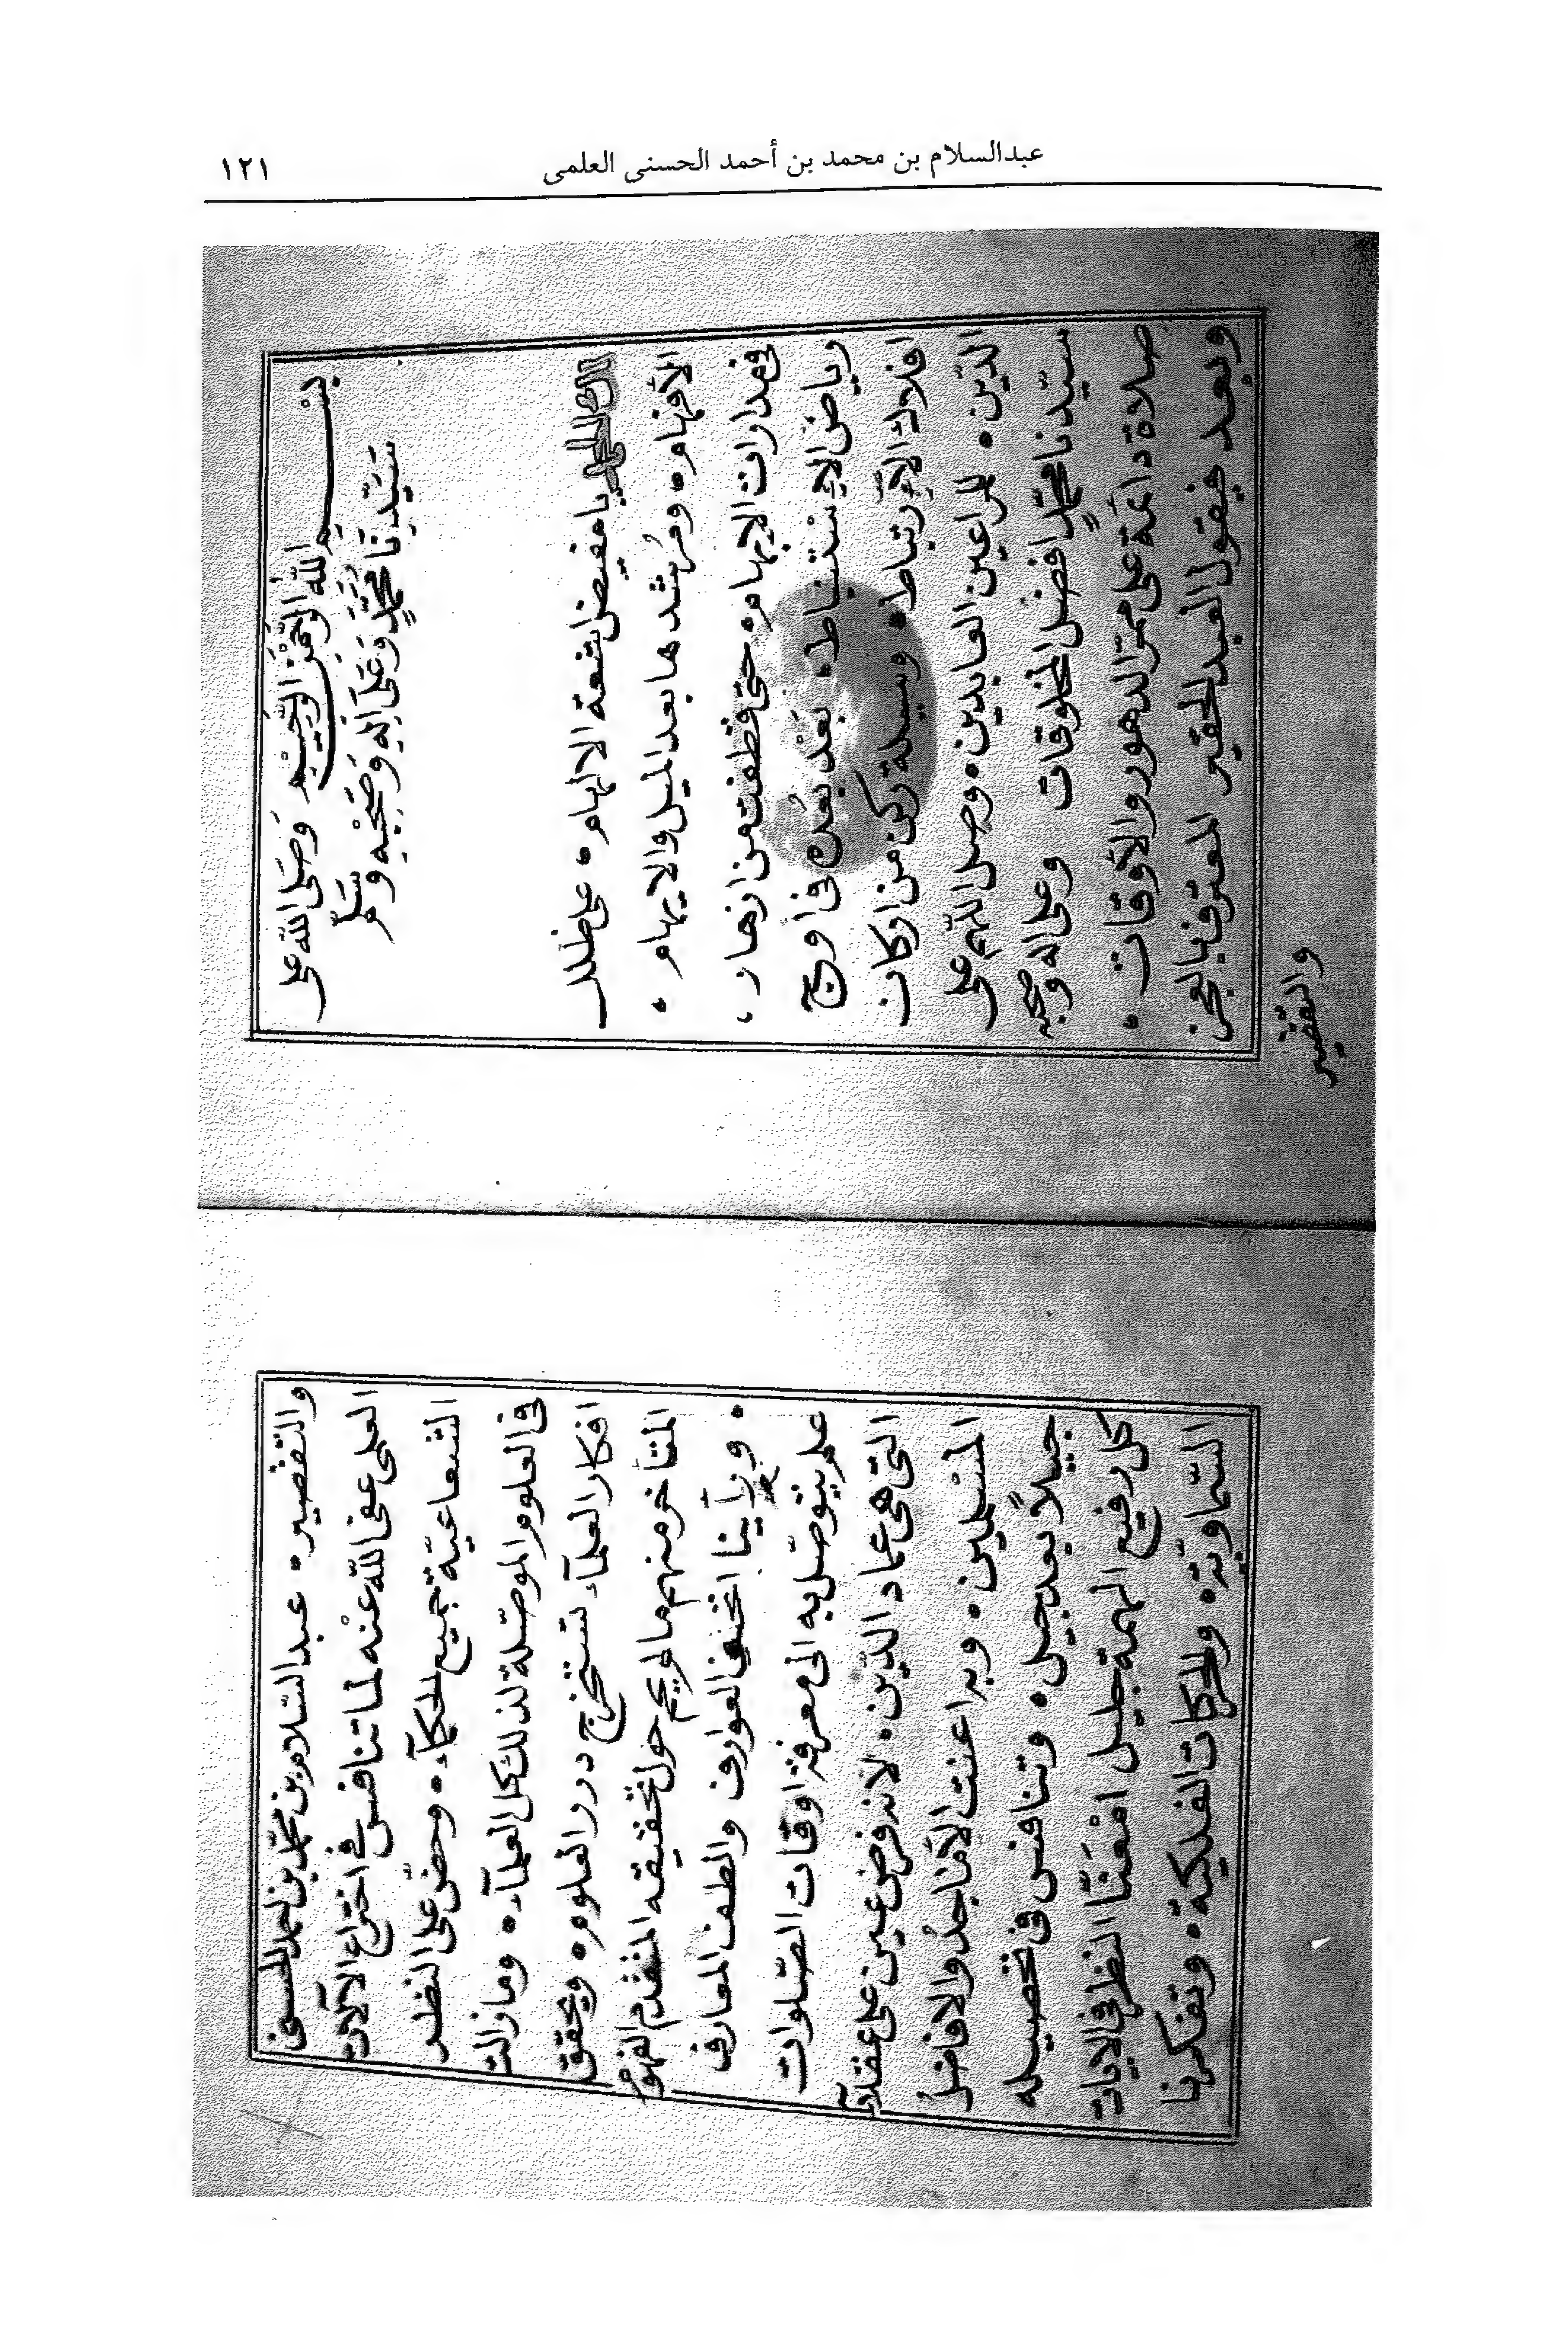 عبدالسلام بن محمد بن أحمد الحسنى العلمى
١٢١
بسم الله الرحمن الرحيم وصلى الله على
سيدنا محمد وعلى اله وصحبه وسلم
لك الحمد يا مفيض اشعة الالهام، على ظلل
الأفهام، ومرشدها بعد الميل والايهام،
فى مدارات الابهام، حتى قطفت من ازهار،
رياض الإستنباط، بعد بعده فى اوج
افلاك الإرتباط، وسيلة ركن من اركان
الدين، للراعين العابدين، وصل اللهم على
سيدنا محمد افضل المخلوقات وعلى اله وصحبه
صلاة دائمة على ممر الدهور والأوقات،
وبعد فيقول العبد الحقير المعترف بالعجز
والتقصير
والتقصير، عبد السلام بن محمد بن احمد الحسنى
العلمى عفى الله عنه لما تنافس فى اختراع الآلات
الشعاعية جميع الحكمآء، وحض على النظر
فى العلوم الموصلة لذلك كل العلمآء، وما زالت
افكار العلمآء تستخرج درر العلوم، ويحقق
المتأخر منهم ما لم يحم حول تحقيقه المتقدم الفهوم
، ورأينا اتحف العوارف والطف المعارف
علم يتوصل به الى معرفة اوقات الصلوات
التى هى عماد الدين، لانه فرض عين على عقلآ
المسلمين، وبه اعنت الأماجد والافاضل
جيلاً بعد جيل، وتنافس فى تحصيله
كل رفيع الهمة جليل امعنا النظر فى الايات
السماوية، والحركات الفلكية، وتفكرنا